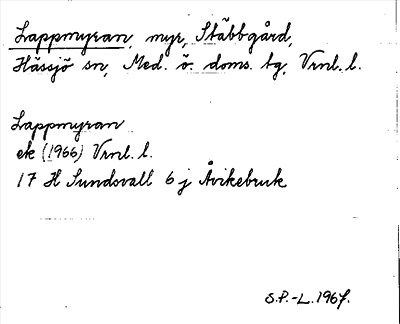 Lappmyran, myr, Stäbbgård,
Hässjö sn, Med. ö. doms. tg, Vrnl. l.
Lappmyran
ek (1966) Vrnl. l.
17 H Sundsvall 6 j Åvikebruk
S.P.-L. 1967.